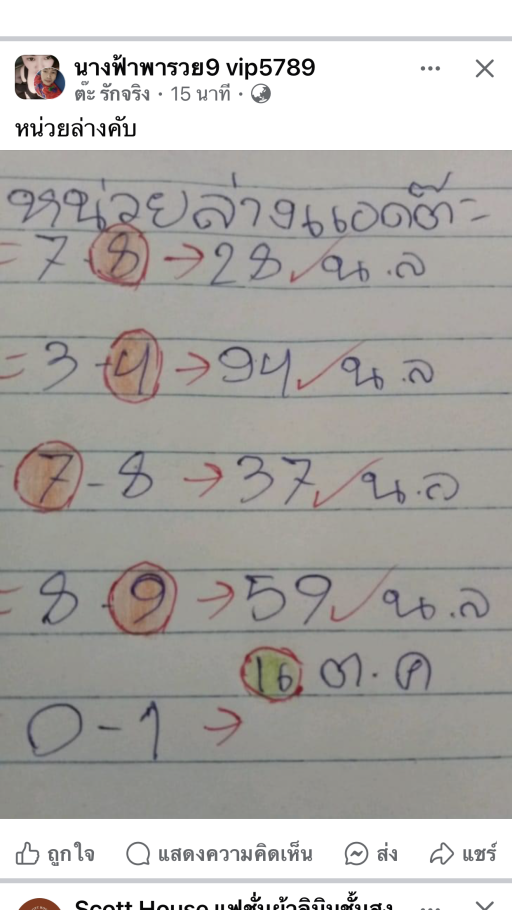 นางฟ้าพารวย9 vip5789
ต๊ะ รักจริง · 15 นาที ·
หน่วยล่างคับ
หน่วยล่างแอดต๊ะ
= 7-8 → 28 ✓ น.ล
= 3-4 → 94 ✓ น.ล
7-8 → 37 ✓ น.ล
= 8-9 → 59 ✓ น.ล
16 ต.ค
0-1 →
ถูกใจ แสดงความคิดเห็น ส่ง แชร์
Scott House แฟชั่นผ้าลินินชั้นสูง